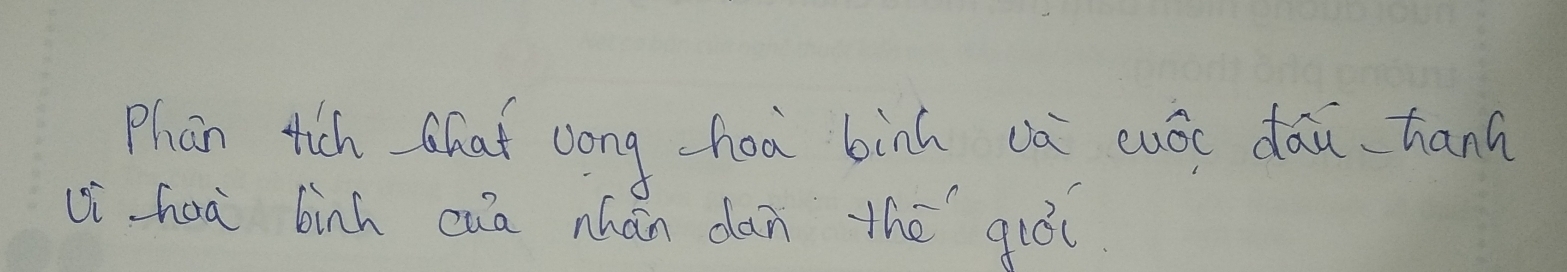 Phân tích khát vọng hoà bình và cuộc đấu tranh
vì hoà bình của nhân dân thế giới.